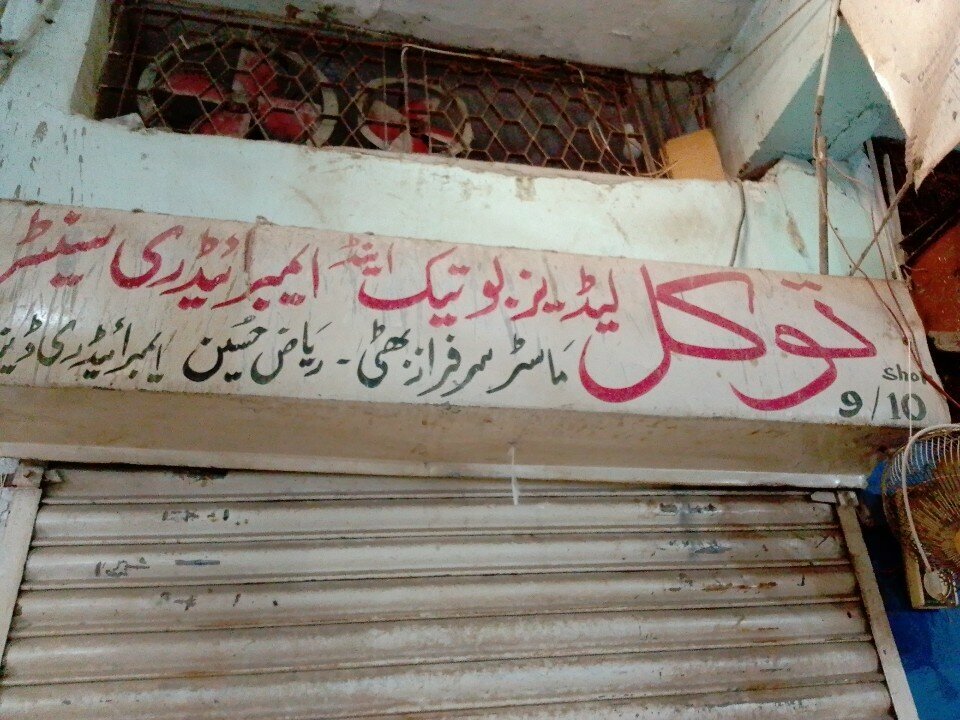 توکل لیڈیز بوتیک اینڈ ایمبرائیڈری سینٹر
ماسٹر سرفراز بھٹی - ریاض حسین ایمبرائیڈری
Shop
9/10